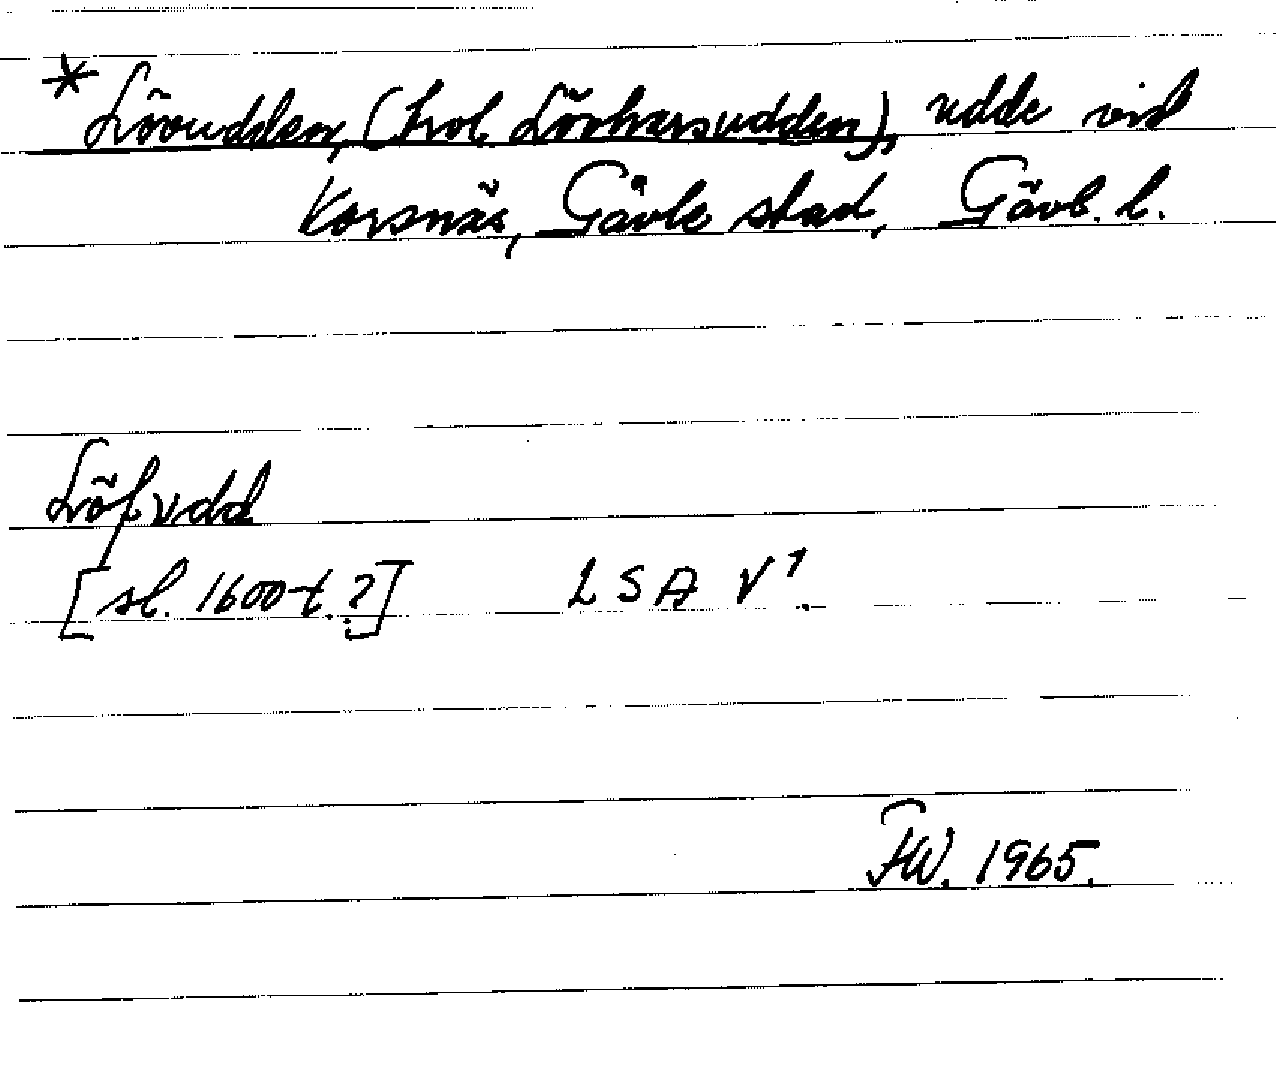 * Lövudden, (trol. Lövharsudden), udde vid
Korsnäs, Gävle stad, Gävb. l.
Löfvdd
[sl. 1600-t.?] LSA V¹.
FW. 1965.